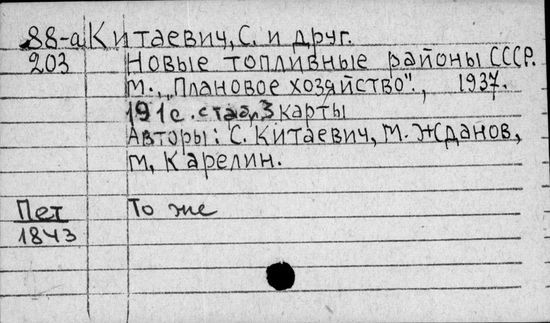 88-а Китаевич, С. и друг.
203 Новые топливные районы СССР.
М., „Плановое хозяйство"., 1937.
191 с. с табл. 3 карты
Авторы: С. Китаевич, М. Жданов,
М, Карелин.
Пет То же
1843